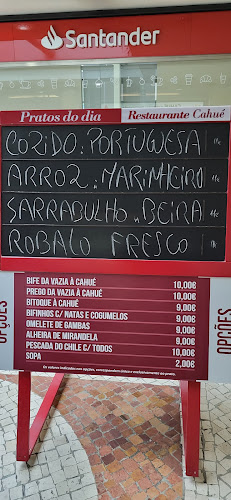 Santander
Pratos do dia Restaurante Cahué
COZIDO. PORTUGUESA
ARROZ. MARINHEIRO
SARRABULHO. BEIRA
ROBALO FRESCO
OPÇÕES
BIFE DA VAZIA À CAHUÉ 10,00€
PREGO DA VAZIA À CAHUÉ 10,00€
BITOQUE À CAHUÉ 9,00€
BIFINHOS C/ NATAS E COGUMELOS 9,00€
OMELETE DE GAMBAS 9,00€
ALHEIRA DE MIRANDELA 9,00€
PESCADA DO CHILE C/ TODOS 10,00€
SOPA 2,00€
OPÇÕES